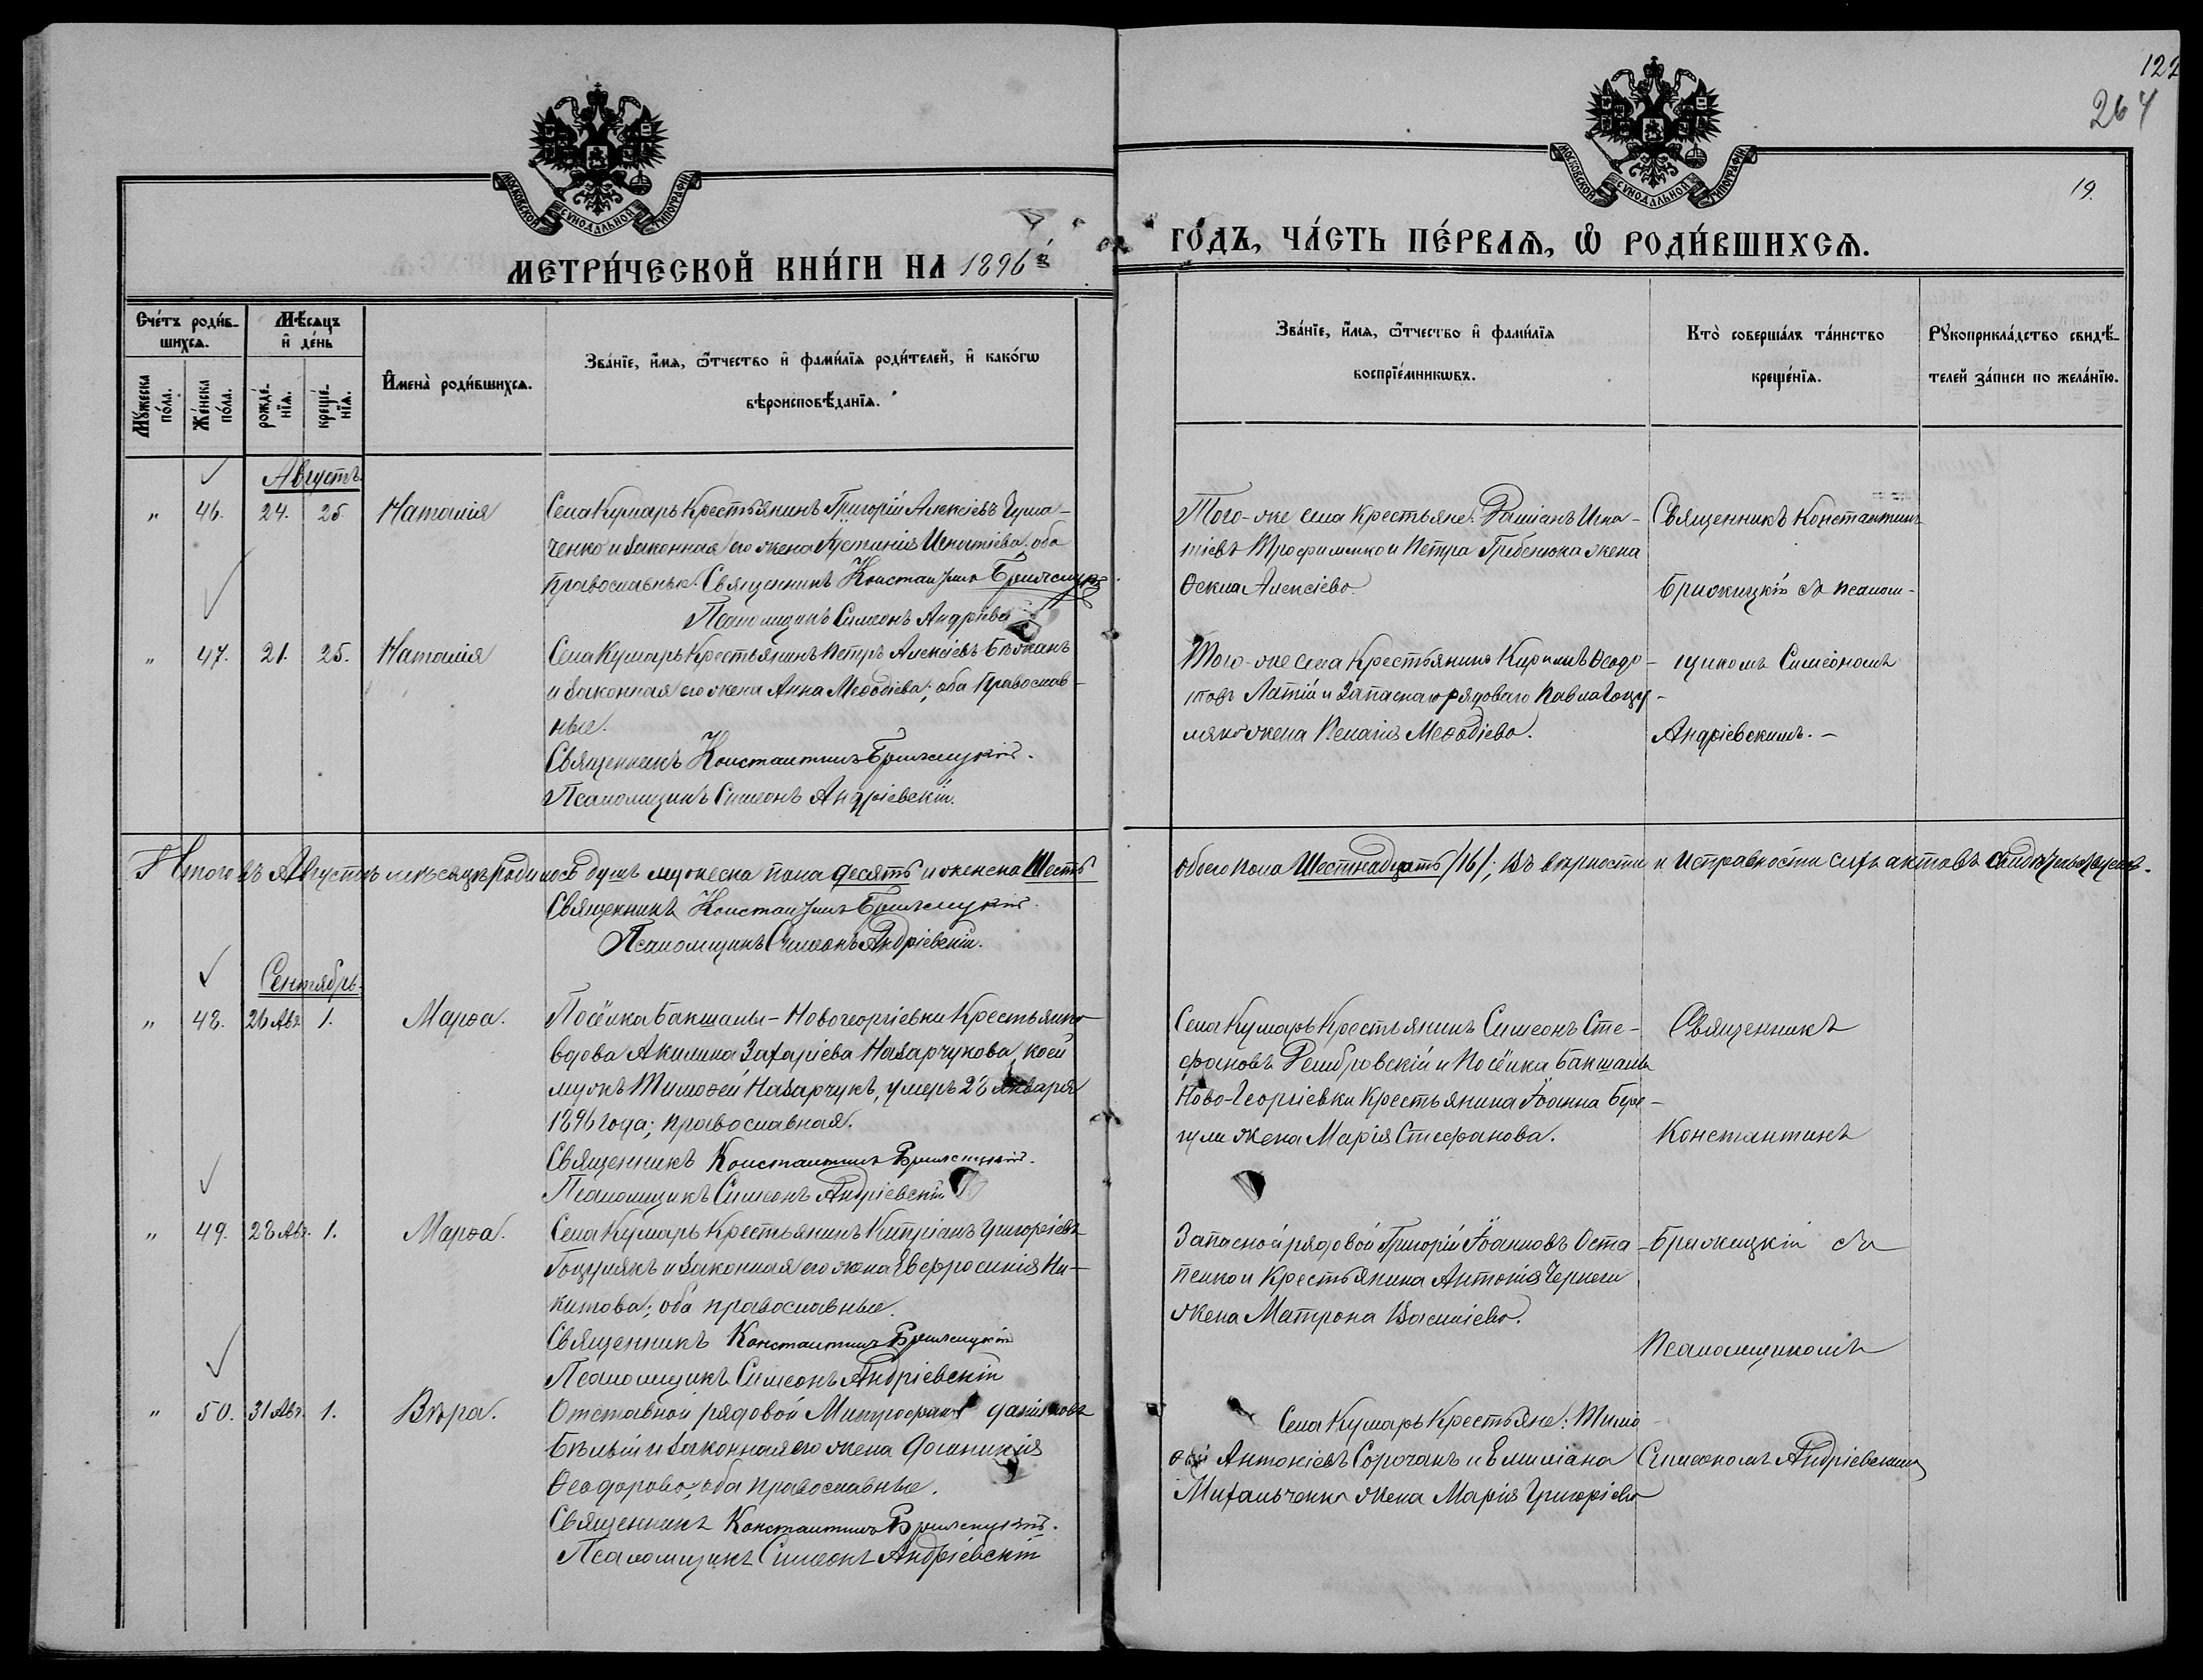 122
264
19.
МОСКОВСКОЙ СѴНОДАЛЬНОЙ ТИПОГРАФІИ
МОСКОВСКОЙ СѴНОДАЛЬНОЙ ТИПОГРАФІИ
МЕТРИ́ЧЕСКОЙ КНИ́ГИ НА 1896й
ГО́ДЪ, ЧА́СТЬ ПЕ́РВАѦ, Ѡ РОДИ́ВШИХСѦ.
Сче́тъ роди́в-
шихсѧ.
Мѣ́сѧцъ
и҆ де́нь
Мꙋ́жеска
по́ла.
Же́нска
по́ла.
рожде́-
нїѧ.
креще́-
нїѧ.
И҆мена̀ роди́вшихсѧ.
Зва́нїе, и҆́мѧ, ѻ҆́тчество и҆ фами́лїѧ роди́телей, и҆ како́гѡ
вѣроисповѣ́данїѧ.
Зва́нїе, и҆́мѧ, ѻ҆́тчество и҆ фами́лїѧ
воспрїе́мникѡвъ.
Кто̀ соверша́лъ та́инство
креще́нїѧ.
Рꙋкоприкла́дство свидѣ́-
телей за́писи по жела́нїю.
Августъ.
" 46. 24. 25. Наталія
Села Кумаръ Крестьянинъ Григорій Алексіевъ
ченко и законная его жена Іустинія Игнатіева; оба
православные. Священникъ Константинъ Брижицкій
Псаломщикъ Симеонъ Андріевскій
Того-же села крестьяне: Даміанъ Игна-
тіевъ Трофименко и Петра Гребенюка жена
Ѳекла Алексіева.
Священникъ Константинъ
Брижицкій съ псалом-
" 47. 21. 25. Наталія
Села Кумаръ Крестьянинъ Петръ Алексіевъ Бѣжанъ
и законная его жена Анна Меѳодіева; оба Православ-
ные.
Священникъ Константинъ Брижицкій.
Псаломщикъ Симеонъ Андріевскій.
Того-же села Крестьянинъ Кириллъ Ѳеодо-
товъ Латій и Запаснаго рядоваго Павла Гоцу-
ляка жена Пелагія Меѳодіева.
щикомъ Симеономъ
Андріевскимъ. —
Итого въ Августѣ мѣсяцѣ родилось душъ мужеска пола десять и женска Шесть
обоего пола Шестнадцать /16/; Въ вѣрности и исправности сихъ актовъ свидѣтельствуемъ.
Священникъ Константинъ Брижицкій.
Псаломщикъ Симеонъ Андріевскій.
Сентябрь.
" 48. 26 Авг. 1. Марѳа.
Посёлка Бакшалы-Новогеоргіевки Крестьянка
вдова Акилина Захаріева Назарчукова, коей
мужъ Тимоѳей Назарчукъ, умеръ 28 января
1896 года; православная.
Священникъ Константинъ Брижицкій.
Псаломщикъ Симеонъ Андріевскій
Села Кумаръ Крестьянинъ Симеонъ Сте-
фановъ Домбровскій и Посёлка Бакшалы
Ново-Георгіевки Крестьянина Іоанна Бере-
гули жена Марія Стефанова.
Священникъ
Константинъ
" 49. 28 Авг. 1. Марѳа.
Села Кумаръ Крестьянинъ Кипріанъ Григоріевъ
Гоцулякъ и законная его жена Евфросинія Ни-
китова; оба православные.
Священникъ Константинъ Брижицкій
Псаломщикъ Симеонъ Андріевскій
Запасной рядовой Григорій Іоанновъ Оста-
пенко и Крестьянина Антонія Чернеги
жена Матрона Василіева.
Брижицкій съ
Псаломщикомъ
" 50. 31 Авг. 1. Вѣра.
Отставной рядовой Митрофанъ Даніиловъ
Бѣлый и законная его жена Домникія
Ѳеодорова, оба православные.
Священникъ Константинъ Брижицкій.
Псаломщикъ Симеонъ Андріевскій
Села Кумаръ Крестьяне: Тимо-
ѳей Антоніевъ Сорочанъ и Емиліана
Михальченка жена Марія Григоріева
Симеономъ Андріевскимъ